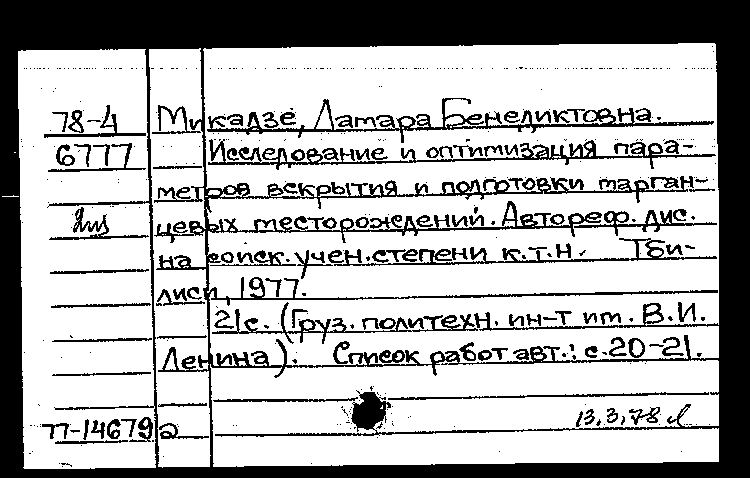 78-4 Микадзе, Ламара Бенедиктовна.
6777 Исследование и оптимизация пара-
метров вскрытия и подготовки марган-
цевых месторождений. Автореф. дис.
на соиск. учен. степени к.т.н. Тби-
лиси, 1977.
21с. (Груз. политехн. ин-т им. В.И.
Ленина). Список работ авт.: с.20-21.
77-14679а 13.3.78